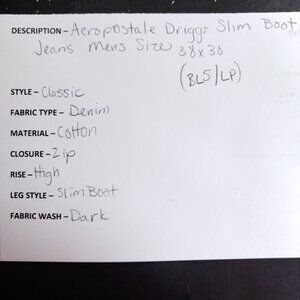 DESCRIPTION – Aeropostale Driggs Slim Boot
Jeans Mens Size 38x30
(BLS/LP)
STYLE – Classic
FABRIC TYPE – Denim
MATERIAL – Cotton
CLOSURE – Zip
RISE – High
LEG STYLE – Slim Boot
FABRIC WASH – Dark